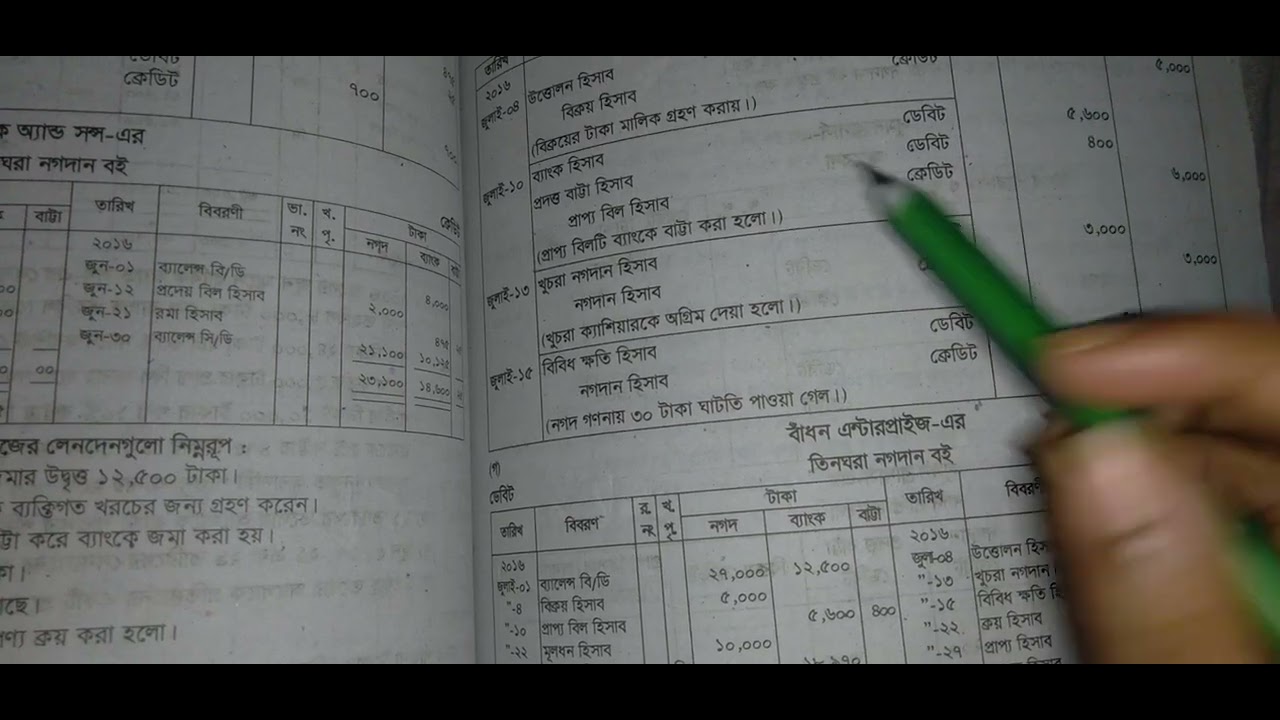 ডেবিট
ক্রেডিট
৭০০
অ্যান্ড সন্স-এর
ঘরা নগদান বই
ক্রেডিট
বাট্টা তারিখ বিবরণী ভা. নং খ. পৃ. টাকা
নগদ ব্যাংক
২০১৬
জুন-০১ ব্যালেন্স বি/ডি ৪,০০০
জুন-১২ প্রদেয় বিল হিসাব ২,০০০
জুন-২১ রমা হিসাব
জুন-৩০ ব্যালেন্স সি/ডি ২১,১০০ ১০,১২৫
২৩,১০০ ১৪,৬০০
জের লেনদেনগুলো নিম্নরূপ :
মার উদ্বৃত্ত ১২,৫০০ টাকা।
ব্যক্তিগত খরচের জন্য গ্রহণ করেন।
ট্টা করে ব্যাংকে জমা করা হয়।
কা।
ছে।
পণ্য ক্রয় করা হলো।
তারিখ
২০১৬
জুলাই-০৪ উত্তোলন হিসাব
বিক্রয় হিসাব ক্রেডিট ৫,০০০
(বিক্রয়ের টাকা মালিক গ্রহণ করায়।)
জুলাই-১০ ব্যাংক হিসাব ডেবিট ৫,৬০০
প্রদত্ত বাট্টা হিসাব ডেবিট ৪০০
প্রাপ্য বিল হিসাব ক্রেডিট ৬,০০০
(প্রাপ্য বিলটি ব্যাংকে বাট্টা করা হলো।)
জুলাই-১৩ খুচরা নগদান হিসাব ৩,০০০
নগদান হিসাব ৩,০০০
(খুচরা ক্যাশিয়ারকে অগ্রিম দেয়া হলো।)
জুলাই-১৫ বিবিধ ক্ষতি হিসাব ডেবিট
নগদান হিসাব ক্রেডিট
(নগদ গণনায় ৩০ টাকা ঘাটতি পাওয়া গেল।)
বাঁধন এন্টারপ্রাইজ-এর
(গ) তিনঘরা নগদান বই
ডেবিট
তারিখ বিবরণ র. নং খ. পৃ. টাকা তারিখ
নগদ ব্যাংক বাট্টা
২০১৬ ২০১৬
জুলাই-০১ ব্যালেন্স বি/ডি ২৭,০০০ ১২,৫০০ জুন-০৪ উত্তোলন
"-৪ বিক্রয় হিসাব ৫,০০০ "-১৩ খুচরা নগদান
"-১০ প্রাপ্য বিল হিসাব ৫,৬০০ ৪০০ "-১৫ বিবিধ ক্ষতি
"-২২ মূলধন হিসাব ১০,০০০ "-২২ ক্রয় হিসাব
"-২৭ প্রাপ্য হিসাব